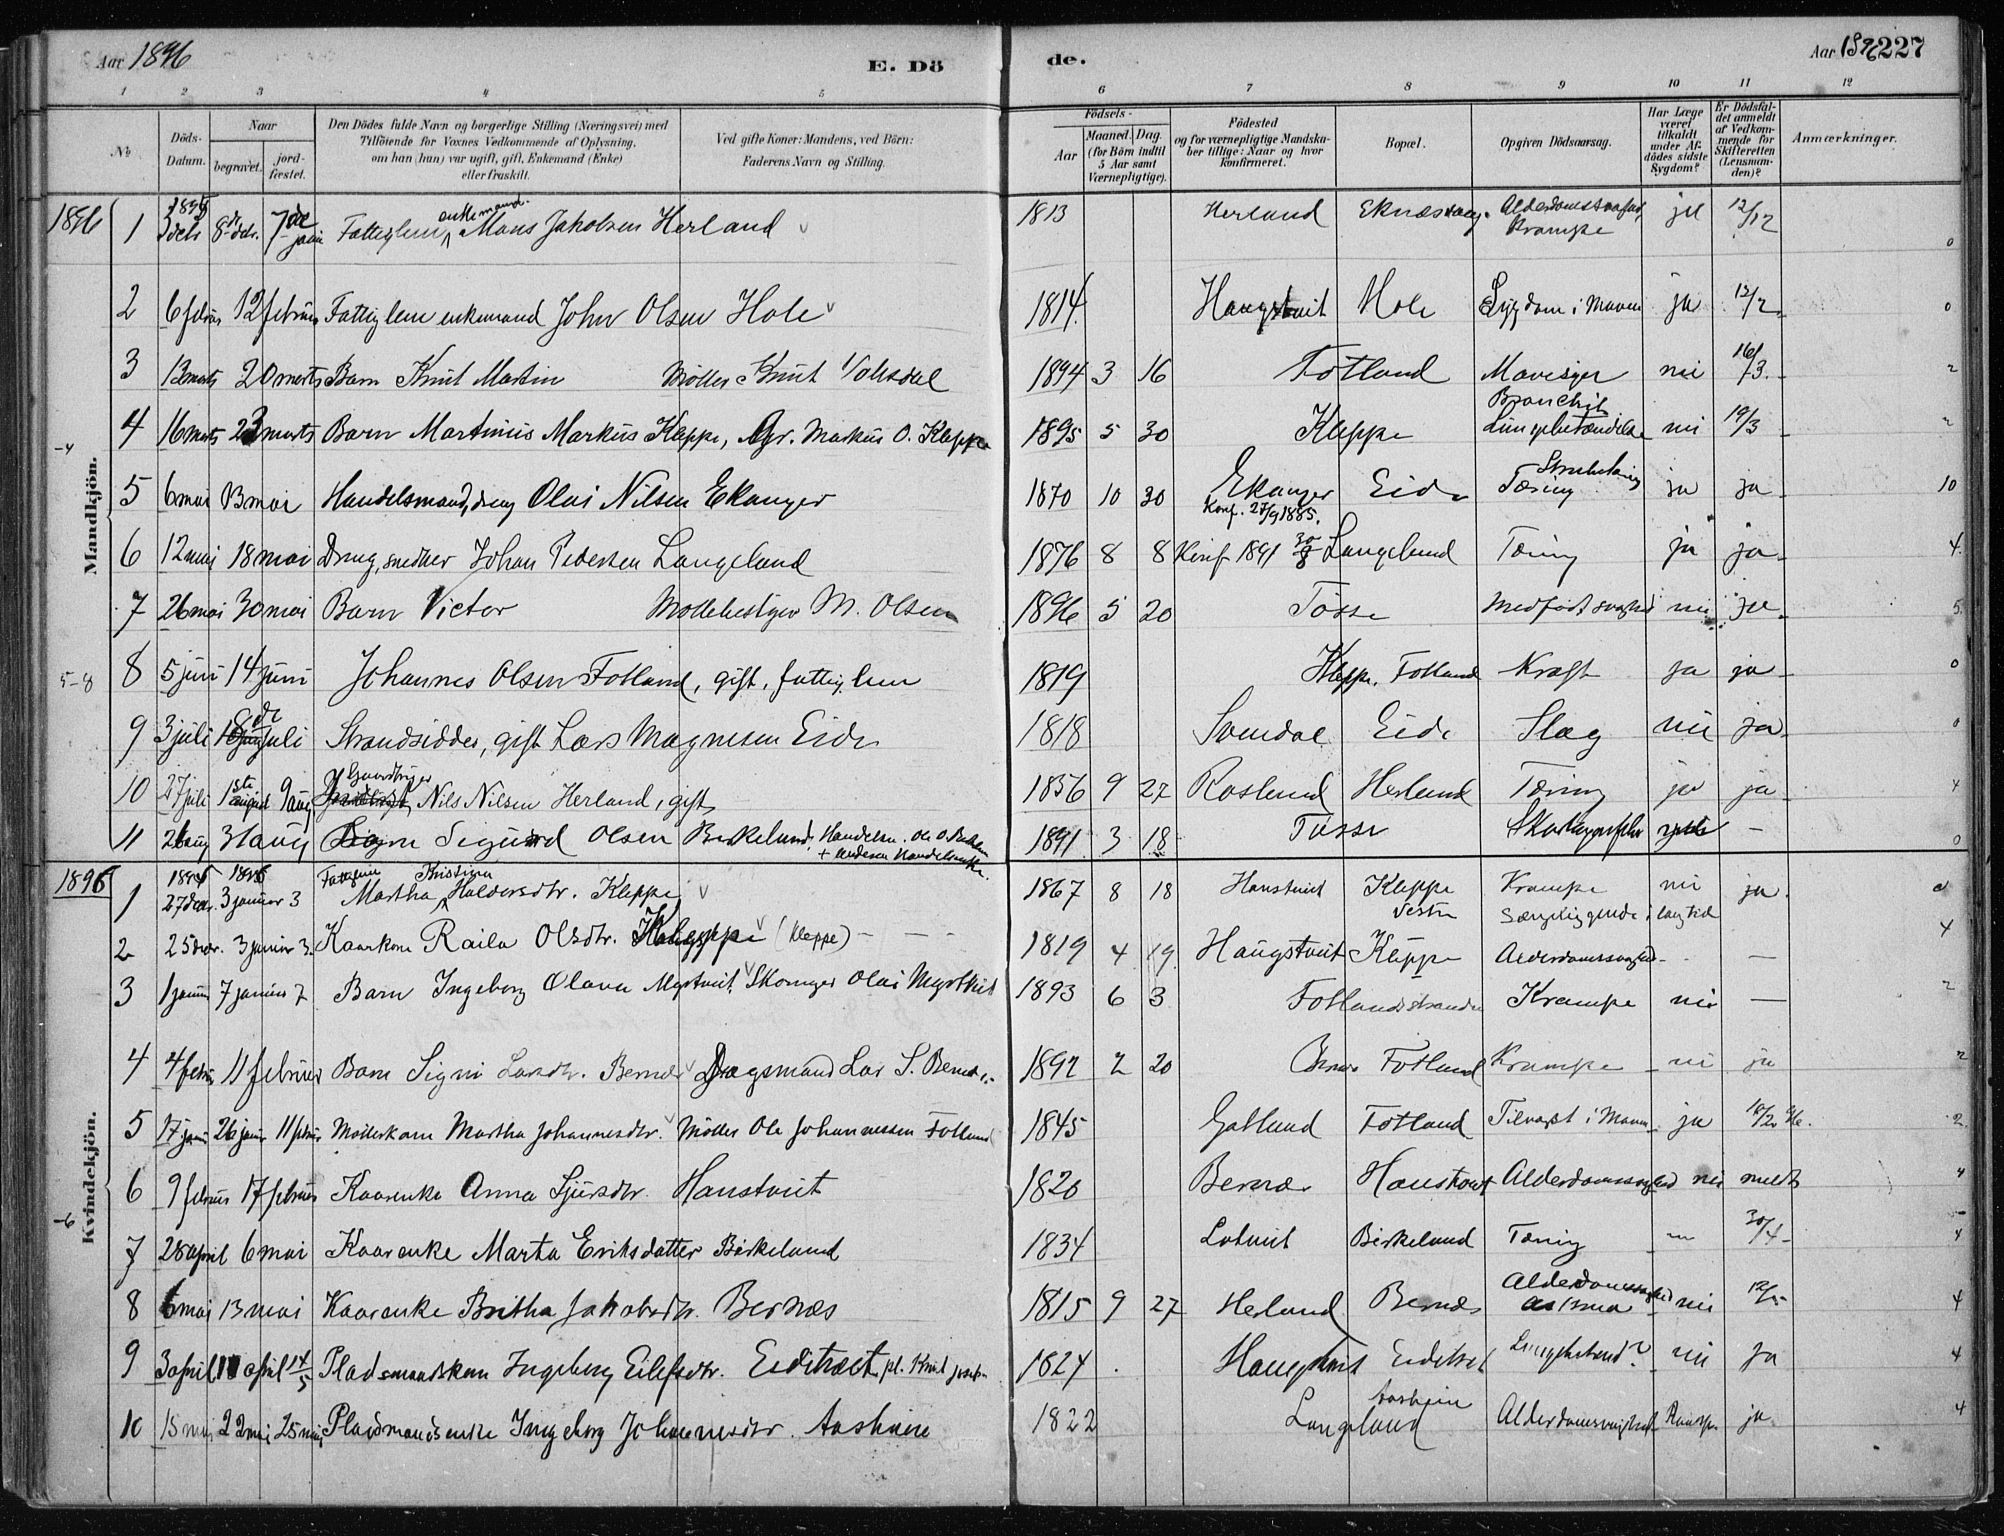 Aar 1896 E. Dö de. Aar 1896 227
1 2 3 4 5 6 7 8 9 10 11 12
No. Döds-Datum. Naar begravet. jordfæstet. Den Dödes fulde Navn og borgerlige Stilling (Næringsvei) med Tilföiende for Voxnes Vedkommende af Oplysning, om han (hun) var ugift, gift, Enkemand (Enke) eller fraskilt. Ved gifte Koner: Mandens, ved Börn: Faderens Navn og Stilling. Födsels- Aar Maaned. Dag. (for Börn indtil 5 Aar samt Værnepligtige). Födested og for værnepligtige Mandskaber tillige: Naar og hvor konfirmeret. Bopæl. Opgiven Dödsaarsag. Har Læge været tilkaldt under Afdödes sidste Sygdom? Er Dödsfaldet anmeldt af Vedkommende for Skifteretten (Lensmanden)? Anmærkninger.
Mandkjön.
1896 1 3 8 7de Fattiglem enkemand Mons Jakobsen Herland 1813 Herland Krampe 12/12 0
2 6 februar 12 februar Fattiglem enkemand John Olsen Hole 1814. Haugstveit Hole Sygdom i Maven ja 12/2 0
3 13 marts 20 marts Barn Knut Martin Møller Knut 1894 3 16 Fotland nei 16/3 2
4 16 marts 23 marts Barn Martinus Markus Kleppe, Gr. Markus O. Kleppe 1895 5 30 Kleppe Bronchit Lungebetændelse nei 19/3 2
5 6 mai 13 mai Handelsmand, dreng Olai Nilsen Ekanger 1870 10 30 Ekanger Konf. 27/9 1885. Eide Tæring ja ja 10
6 12 mai 18 mai Dreng, snedker Johan Pedersen Langeland 1876 8 8 Konf 1891 Langeland Tæring ja ja 4
7 26 mai 30 mai Barn Victor Møllebestyrer M. Olsen 1896 5 20 Tøsse Medfødt svaghed nei ja 5
5-8 8 5 juni 14 juni Johannes Olsen Fotland, gift, fattiglem 1819 Kleppe. Fotland Kræft ja ja 0
9 3 juli juli Strandsidder, gift Lars Magnesen Eide 1818 Eide Slag nei ja 0
10 27 juli 1ste august 9 aug Gaardbruger Nils Nilsen Herland, gift 1836 9 27 Rosland Herland Tæring ja ja 4
11 26 aug 31 aug Barn Sigurd Olsen Birkeland, Handelsm. 1891 3 18 Tøsse — 0
Kvindekjön.
1896 1 27 decbr. 3 januar 3 Fattiglem Martha Kristina Haldorsdtr. Kleppe 1867 8 18 Hanstveit Kleppe Vestre Krampe Sengeliggende i lang tid nei ja
2 25 decbr. 3 januar 3. Kaarkone Raila Olsdtr. (Kleppe) 1819 4 19 Haugstveit Kleppe Alderdomssvaghed — 4
3 1 januar 7 januar 7 Barn Ingeborg Olava Myrtveit. Skomager Olai Myrtveit 1893 6 3 Fotlandsstranden Krampe nei — 2
4 4 februar 11 februar Barn Signi Larsdtr. Bernes Dagsmand Lar S. Bernes 1892 2 20 Fotland Krampe nei ja 2
5 17 januar 26 januar 11 februar Møllerkone Martha Johannesdtr. Møller Ole Johannessen Fotland 1845 Gatland Fotland Tilvæxt i Maven ja 10/2 96. 2
6 9 februar 17 februar Kaarenke Anna Sjursdtr. Hanstveit 1820 Bernæs Hanstveit Alderdomssvaghed nei meldt 4
7 28 april 6 mai Kaarenke Marta Eriksdatter Birkeland 1834 Birkeland Tæring 30/4 4
8 6 mai 13 mai Kaarenke Britha Jakobsdtr. Bernæs 1815 9 27 Herland Bernæs Alderdomssvaghed nei 12/5 4
9 3 april 11 april 14/5 Pladsmandskone Ingeborg Eilefsdtr. Eidetræet, pl. Knut 1824 nei ja 4
10 15 mai 22 mai 25 mai Pladsmandsenke Ingeborg Johannesdtr. Aasheim 1822 Langeland Aasheim Alderdomssvaghed ja 4